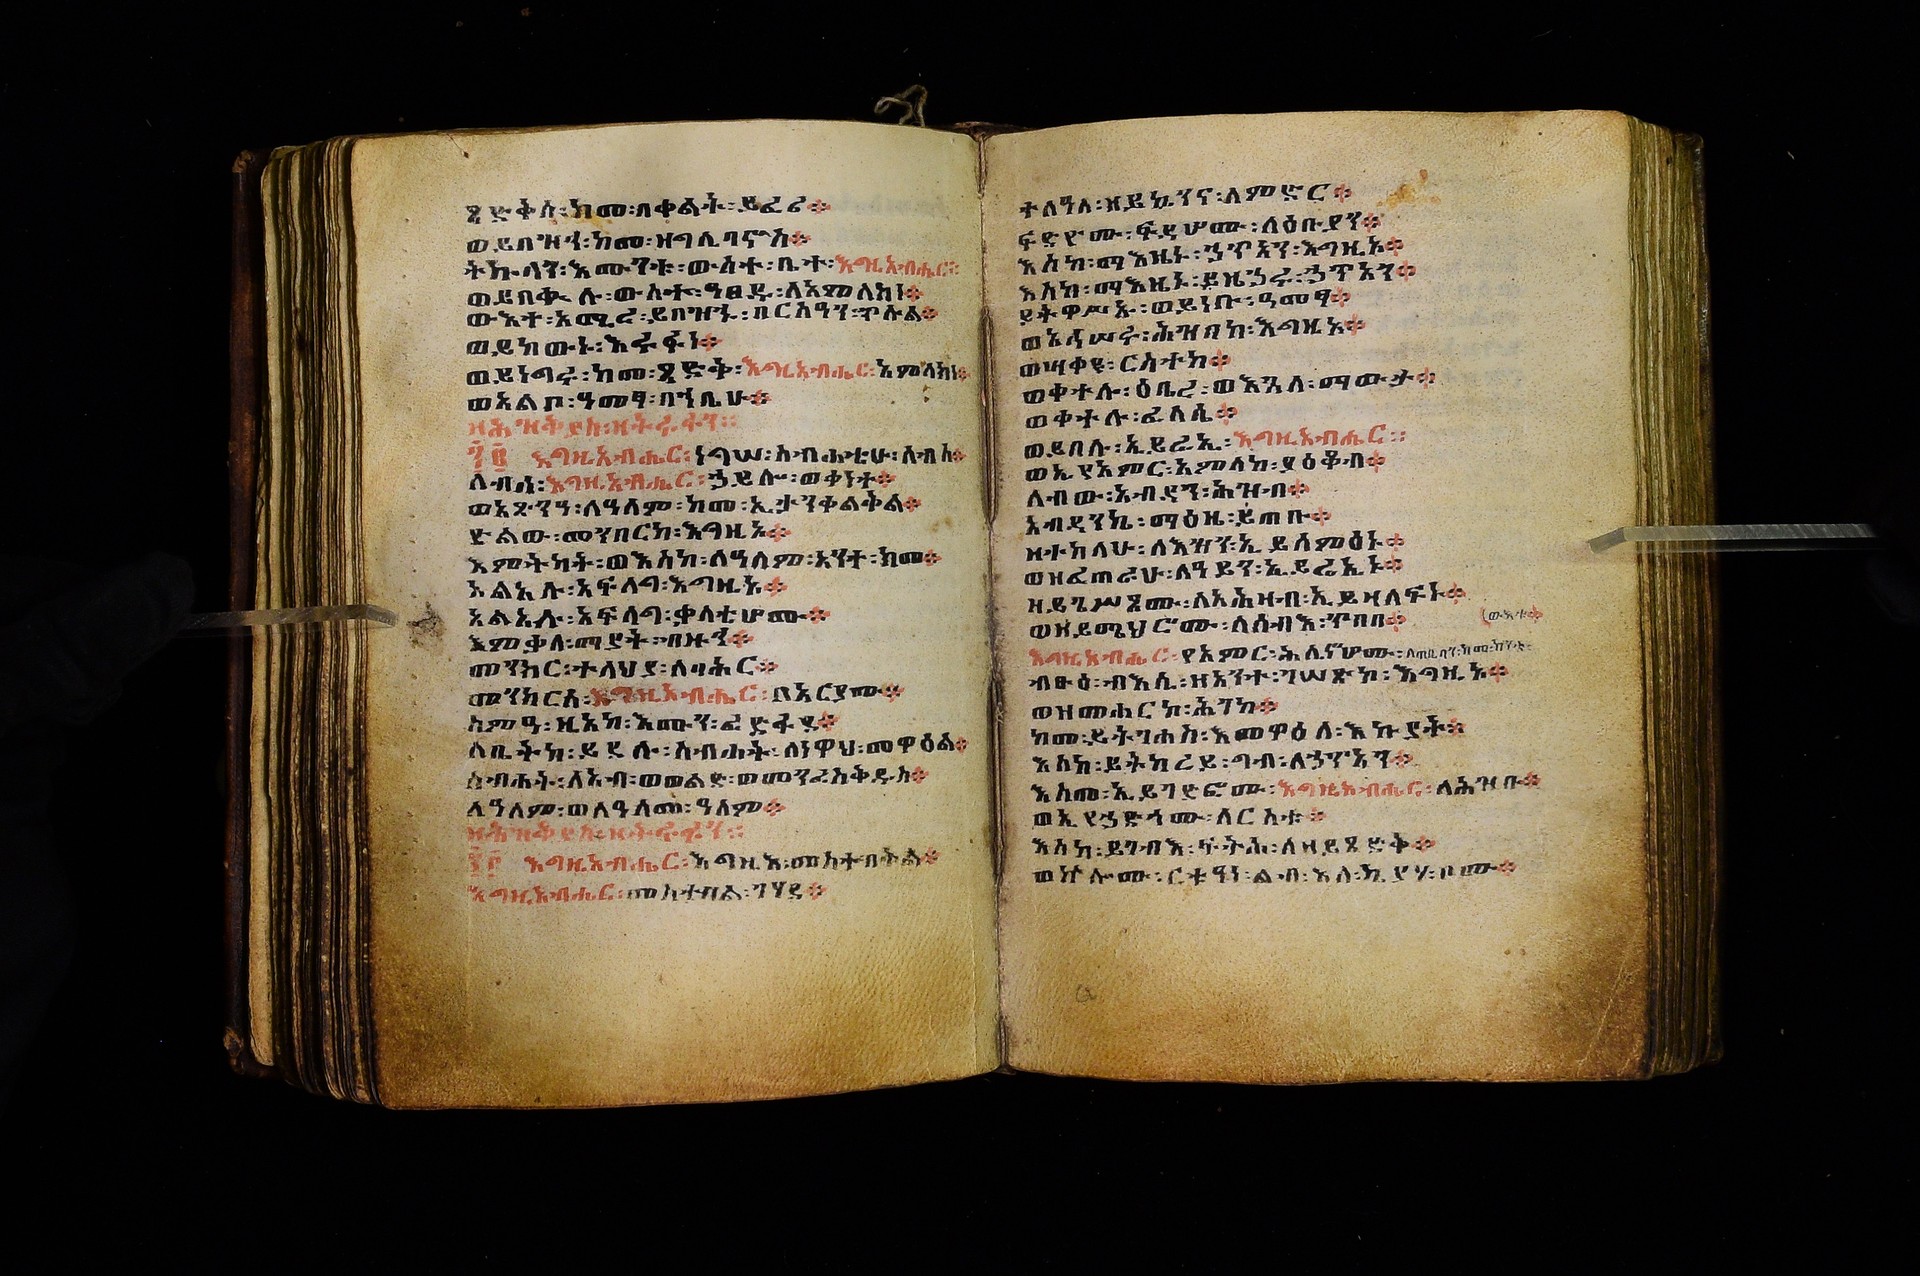 ጻድቅሰ፡ከመ፡በቀልት፡ይፈሪ፨
ወይበዝኅ፡ከመ፡ዝግባ፡ሊባኖስ፨
ትኩላን፡እሙንቱ፡ውስተ፡ቤተ፡እግዚአብሔር፨
ወይበቍሉ፡ውስተ፡ዓፀዱ፡ለአምላክነ፨
ውእተ፡አሚረ፡ይበዝኁ፡በርስዓን፡ጥሉል፨
ወይከውኑ፡እሩፋነ፨
ወይነግሩ፡ከመ፡ጻድቅ፡እግዚአብሔር፡አምላክነ፨
ወአልቦ፡ዓመፃ፡በኀቤሁ፨
፺፪ እግዚአብሔር፡ነግሠ፡ስብሐቲሁ፡ለብሰ፨
ለብሰ፡እግዚአብሔር፡ኃይሎ፡ወቀነተ፨
ወአጽንዓ፡ለዓለም፡ከመ፡ኢታንቀልቅል፨
ድልው፡መንበርከ፡እግዚኦ፨
እምትካት፡ወእስከ፡ለዓለም፡አንተ፡ክመ፨
አልአሉ፡አፍላግ፡እግዚኦ፨
አልአሉ፡አፍላግ፡ቃላቲሆሙ፨
እምቃለ፡ማያት፡ብዙኅ፨
መንክር፡ተላህያ፡ለባሕር፨
መንክርሰ፡እግዚአብሔር፡በአርያሙ፨
ስምዓ፡ዚአከ፡እሙን፡ፈድፋደ፨
ለቤትከ፡ይደሉ፡ስብሐት፡ለነዋህ፡መዋዕል፨
ስብሐት፡ለአብ፡ወወልድ፡ወመንፈስቅዱስ፨
ለዓለም፡ወለዓለመ፡ዓለም፨
፺፫ እግዚአብሔር፡እግዚእ፡መስተበቅል፨
እግዚአብሔር፡መስተበል፡ገሃደ፨
ተለዓለ፡ዘይኴንና፡ለምድር፨
ፍድዮሙ፡ፍዳሆሙ፡ለዕቡያን፨
እስከ፡ማእዜኑ፡ኃጥኣን፡እግዚኦ፨
እስከ፡ማእዜኑ፡ይዜኃሩ፡ኃጥኣን፨
ይትዋሥኡ፡ወይነቡ፡ዓመፃ፨
ወአኅሠሩ፡ሕዝበከ፡እግዚኦ፨
ወሣቀዩ፡ርስተከ፨
ወቀተሉ፡ዕቤረ፡ወእጓለ፡ማውታ፨
ወቀተሉ፡ፈላሴ፨
ወይቤሉ፡ኢይሬኢ፡እግዚአብሔር፨
ወኢያአምር፡አምላከ፡ያዕቆብ፨
ለብው፡አብዳን፡ሕዝብ፨
አብዳንኬ፡ማዕዜ፡ይጠቡ፨
ዘተከላሁ፡ለእዝን፡ኢይሰምዕኑ፨
ወዘፈጠራሁ፡ለዓይን፡ኢይሬኢኑ፨
ዘይጌሥጾሙ፡ለአሕዛብ፡ኢይዛለፍኑ፨
ወዘይሜህሮሙ፡ለሰብእ፡ጥበበ፨
(ውእቱ፨
እግዚአብሔር፡የአምር፡ሕሊናሆሙ፡ለጠቢባን፡ከመ፡ከንቱ፨
ብፁዕ፡ብእሲ፡ዘአንተ፡ገሠጽከ፡እግዚኦ፨
ወዝመሐርከ፡ሕገከ፨
ከመ፡ይትገሐስ፡እመዋዕለ፡እኩያት፨
እስከ፡ይትከረይ፡ግብ፡ለኃጥእን፨
እስመ፡ኢይገድፎሙ፡እግዚአብሔር፡ለሕዝቡ፨
ወኢየኃድጎሙ፡ለርስቱ፨
እስከ፡ይገብእ፡ፍትሕ፡ለዘይጸድቅ፨
ወኵሎሙ፡ርቱዓነ፡ልብ፡እለ፡ኪያሃ፡ቦሙ፨